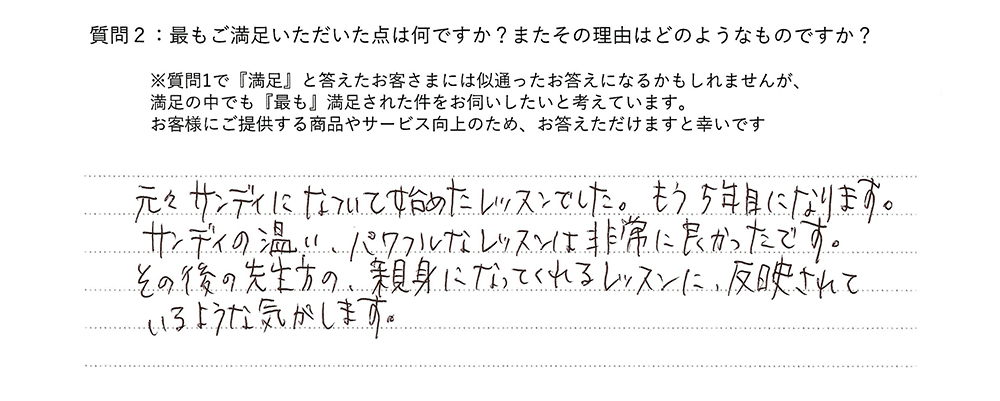 質問２：最もご満足いただいた点は何ですか？またその理由はどのようなものですか？
※質問1で『満足』と答えたお客さまには似通ったお答えになるかもしれませんが、
満足の中でも『最も』満足された件をお伺いしたいと考えています。
お客様にご提供する商品やサービス向上のため、お答えただけますと幸いです
元々サンディになついて始めたレッスンでした。もう５年目になります。
サンディの温い、パワフルなレッスンは非常に良かったです。
その後の先生方の、親身になってくれるレッスンに、反映されて
いるような気がします。